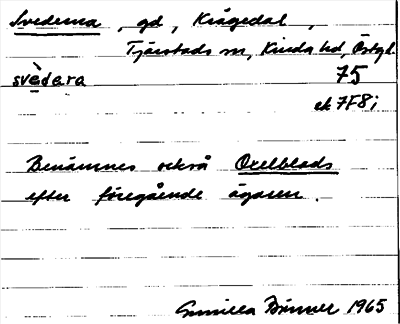 Svederna, gd, Krågedal,
Tjärstads sn, Kinda hd, Östgl.
svèdara 75
ek 7F8i
Benämnes också Oxelblads
efter föregående ägaren.
Gunilla Brönner 1965